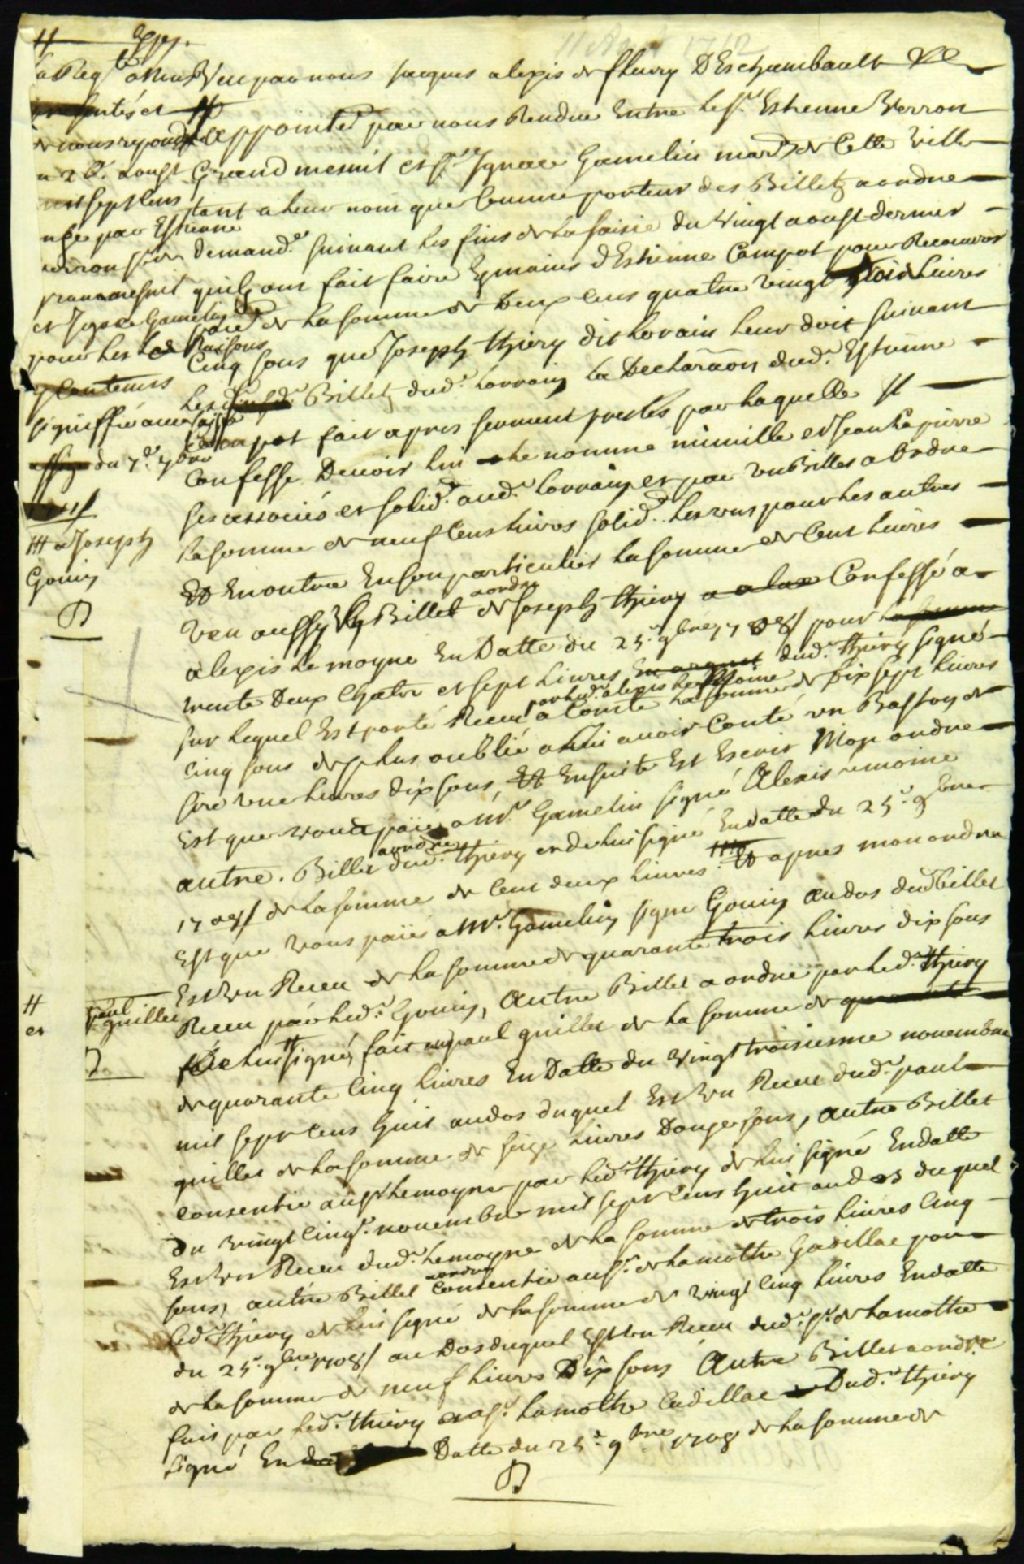 Veu par nous Jacques alexis de fleury DEschambault
appointé par nous Rendue Entre le Sr. Estienne Verron
Grand mesnil et Sr. Ignace Gamelin march. de Cette Ville
tant a leur nom que Comme porteur des Billetz a ordre
Demand. suivant les fins de la saisie du Vingt aoust dernier
quilz ont fait faire Es mains dEstienne Campot pour Recouvrer
de la somme de Deux Cens quatre vingt trois Livres
Cinq sous que Joseph thiery dit Lorain leur doit suivant
Les Billetz dud. Lorrain la Declaraon dud. Estienne
Campot fait apres serment prestés par laquelle Il
Confesse Devoir lui nomme mimille et Jean Lapierre
ses associés et solid. aud. Lorrain et par un Billet a Ordre
la somme de neuf Cens livres solid. les uns pour les autres
Et En outre En son particulier la somme de Cent Livres
Veu aussy Un Billet a ordre de Joseph thiery Confessé a
alexis Le moyne En Datte du 25e 9bre 1708 pour
trente Deux Castor et sept livres dud. thiery signé
sur lequel Est porté Receu par led. alexis Le Moine a Conte la somme de Dix sept Livres
Cinq sous de plus oublié a lui avoir Conté un Baston de
Cire une livres dix sous, Ensuite Est Escrit Mon ordre
Est que vous païez a Mr. Gamelin signé Alexis lemoine
autre. Billet a ordre dud. Thiery et de lui signé En datte du 25e 9bre
1708 de la somme de Cent deux livres apres mon ordre
Est que vous païé a Mr. Gamelin signé Gouin au dos dud billet
Est Un Receu de la somme de quarante trois livres dix sous
Receu par led. Gouin, Autre Billet a ordre par led. Thiery
de lui signé, fait a paul guillet de la somme de
de quarante Cinq Livres En Datte du Vingt troisiesme novembre
mil sept Cens huit au dos duquel Est Un Receu dud. paul
guillet de la somme de seize Livres Douze sous, autre Billet
consentie au Sr. Lemoyne par led. Thiery de lui signé En datte
du vingt Cinq. novembre mil sept Cens huit au dos duquel
Est Un Receu dud. Lemoyne de la somme de trois livres Cinq
sous, autre Billet a ordre Consentie au Sr. de Lamothe Cadillac par
led. Thiery de lui signé de la somme de vingt Cinq livres En datte
du 25e 9bre 1708 au Dos duquel Est Un Receu dud. Sr. de Lamothe
de la somme de neuf Livres Dix sous Autre Billet a ordre
fait par led. Thiery au Sr. Lamothe Cadillac Dud. Thiery
signé En Datte du 25e 9bre 1708 de la somme de
du 20 aoust
mil sept Cens
par Estienne
Verron sieur
Grandmesnil
et Ignace Gamelin
pour les Raisons
y Contenus
signiffié avec
du 7e 7bre
a Joseph
Gouin
paul
guillet